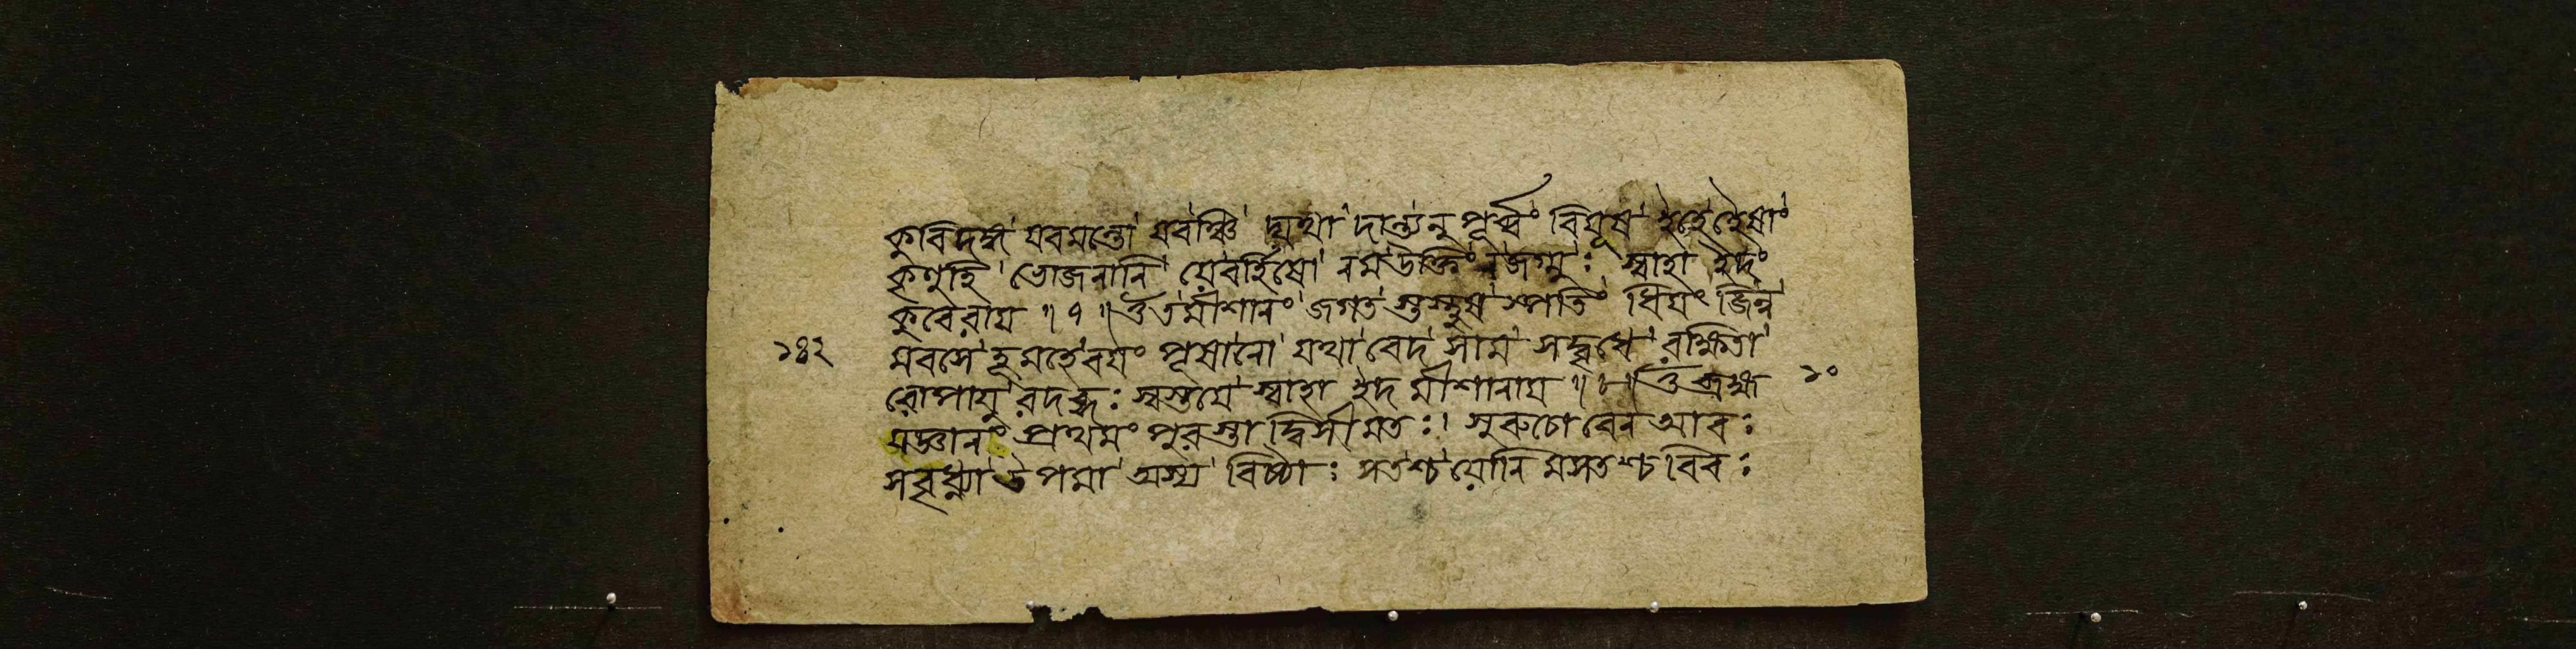 কুবিদঙ্গ যবমন্তো যবঞ্চি দ্যথা দান্ত্যনুপূর্ব্বং বিযূয ইহেহৈষাং
কৃণুহি ভোজনানি যেবর্হিষো নমউক্তিং নজগ্মুঃ স্বাহা ইদং
কুবেরায ॥ ৭ ॥ ওঁ তমীশানং জগত স্তস্থুষ স্পতিং ধিযং জিন্ব
১৪২ মবসে হূমহেবযং পূষানো যথাবেদ সাম সদ্বৃধে রক্ষিতা
রোপাযু রদব্ধঃ স্বস্তযে স্বাহা ইদ মীশানায ॥ ৮ ॥ ওঁ ব্রহ্ম ১০
যজ্ঞানং প্রথমং পুরস্তা দ্বিসীমতঃ। সুরুচো বেন আবঃ
সবুধ্ন্যা উপমা অস্য বিষ্ঠাঃ সতশ্চ যোনি মসতশ্চ বিবঃ